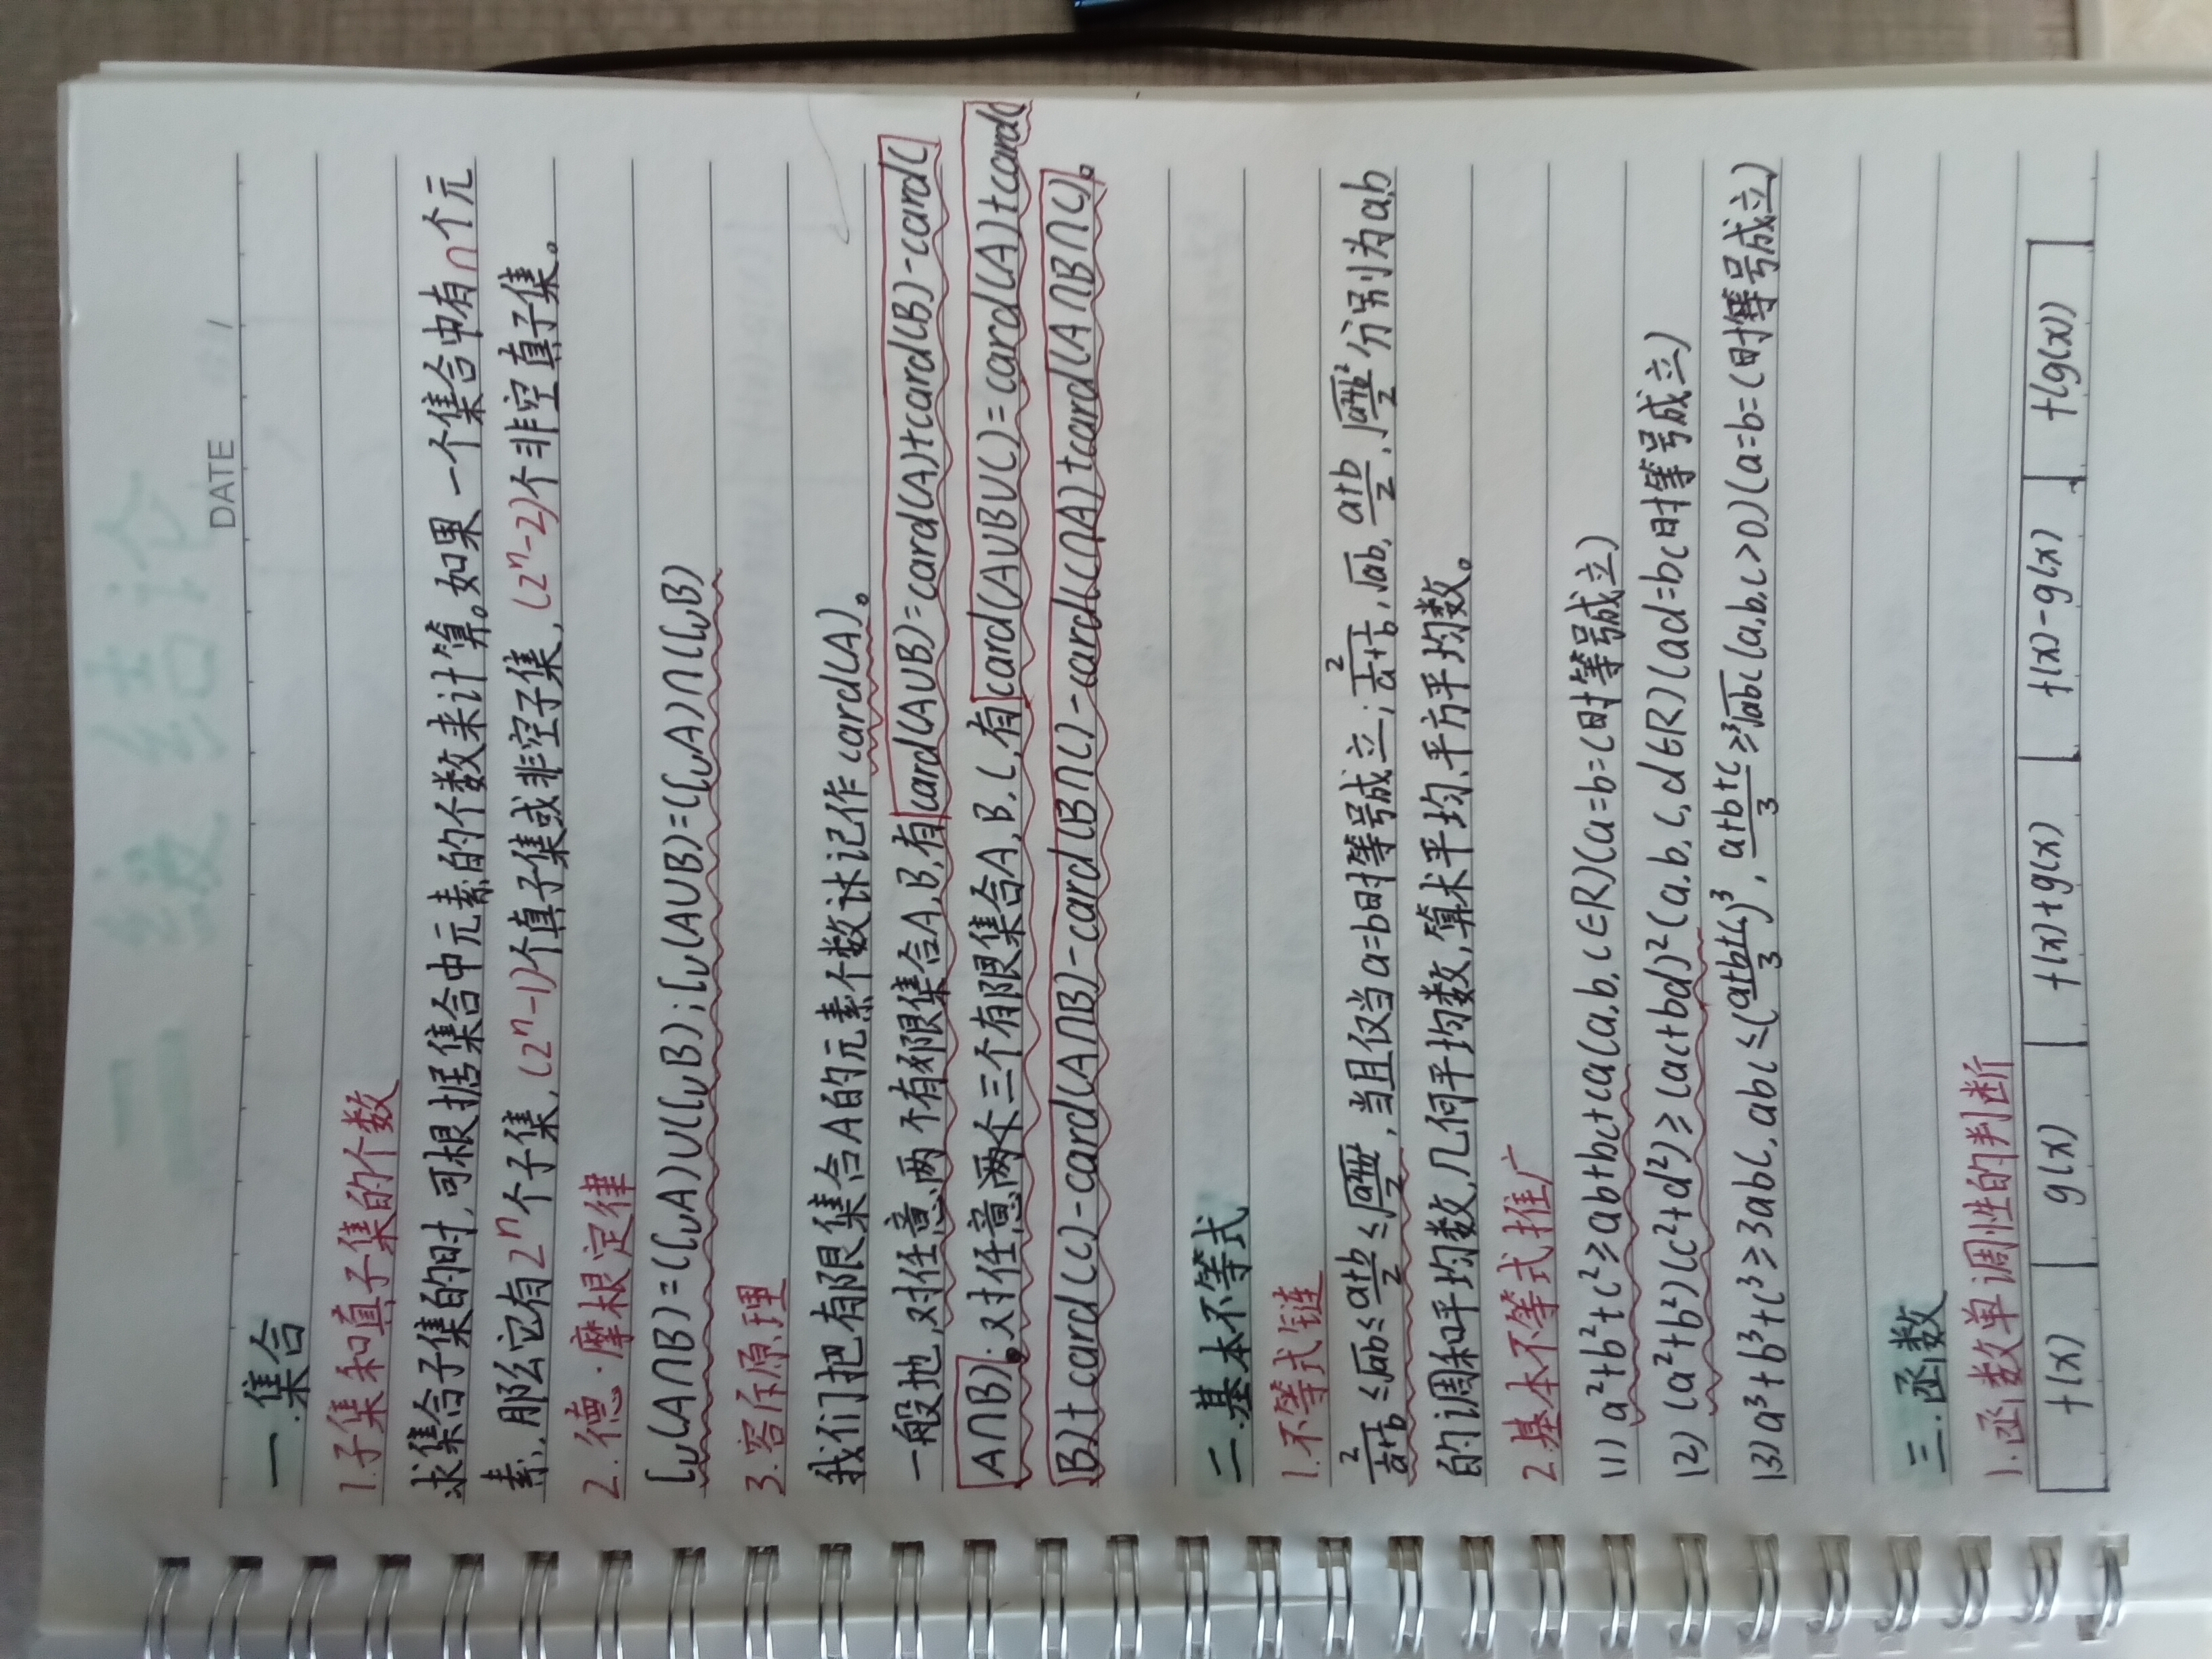 二级结论
DATE
一.集合
1.子集和真子集的个数
求集合子集的时,可根据集合中元素的个数来计算。如果一个集合中有n个元
素,那么它有2ⁿ个子集,(2ⁿ-1)个真子集或非空子集,(2ⁿ-2)个非空真子集。
2.德·摩根定律
∁ᵤ(A∩B)=(∁ᵤA)∪(∁ᵤB);∁ᵤ(A∪B)=(∁ᵤA)∩(∁ᵤB)
3.容斥原理
我们把有限集合A的元素个数记作card(A)。
一般地,对任意两个有限集合A,B,有card(A∪B)=card(A)+card(B)-card(
A∩B).对任意三个有限集合A,B,C,有card(A∪B∪C)=card(A)+card(
B)+card(C)-card(A∩B)-card(B∩C)-card(C∩A)+card(A∩B∩C)。
二.基本不等式
1.不等式链
2/(1/a+1/b)≤√ab≤(a+b)/2≤√((a²+b²)/2),当且仅当a=b时等号成立;2/(1/a+1/b),√ab,(a+b)/2,√((a²+b²)/2)分别为a,b
的调和平均数,几何平均数,算术平均,平方平均数。
2.基本不等式推广
(1)a²+b²+c²≥ab+bc+ca(a,b,c∈R)(a=b=c时等号成立)
(2)(a²+b²)(c²+d²)≥(ac+bd)²(a,b,c,d∈R)(ad=bc时等号成立)
(3)a³+b³+c³≥3abc,abc≤((a+b+c)/3)³,(a+b+c)/3≥³√abc(a,b,c>0)(a=b=c时等号成立)
三.函数
1.函数单调性的判断
f(x) g(x) f(x)+g(x) f(x)-g(x) f(g(x))